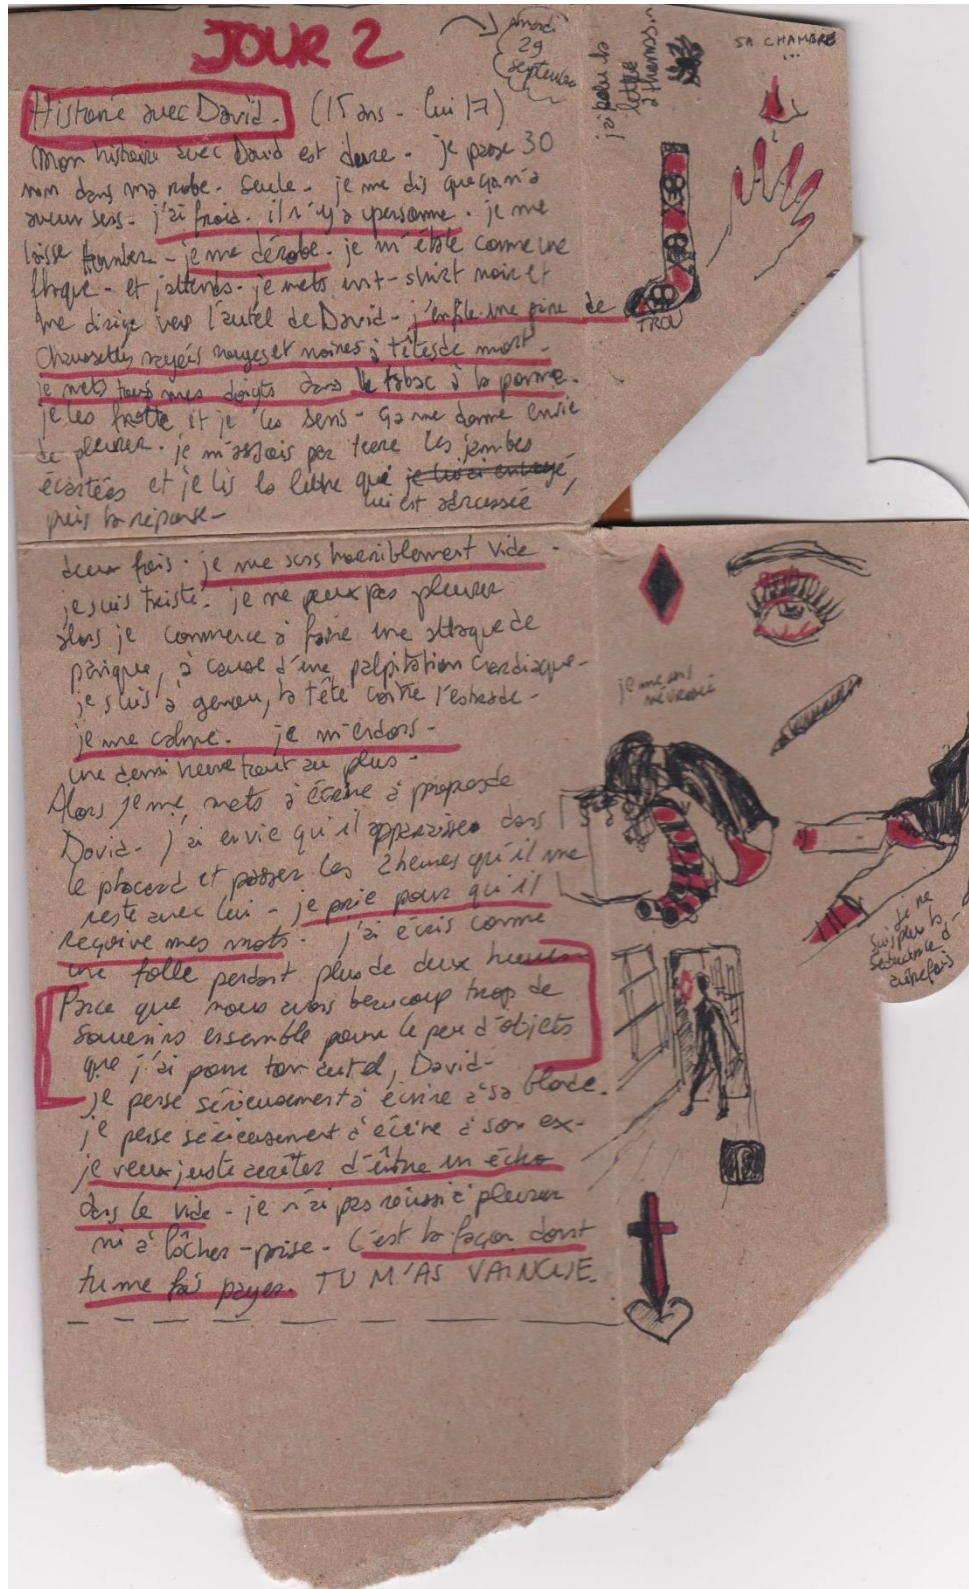 JOUR 2
mardi
29
septembre
Histoire avec David. (15 ans - lui 17)
Mon histoire avec David est dure. je passe 30
min dans ma robe. Seule. je me dis que ça n'a
aucun sens. j'ai froid. il n'y a personne. je me
laisse tomber. je me dérobe. je m'étale comme une
flaque. et j'attends. je mets un t-shirt noir et
me dirige vers l'autel de David. j'enfile une paire de
chaussettes rayées rouges et noires à têtes de mort.
je mets tous mes doigts dans le tabac à la pomme.
je les frotte et je les sens. ça me donne envie
de pleurer. je m'assois par terre les jambes
écartées et je lis la lettre qui je lui ai envoyé,
lui est adressée
puis la réponse.
deux fois. je me sens horriblement vide.
je suis triste. je ne peux pas pleurer
alors je commence à faire une attaque de
panique, à cause d'une palpitation cardiaque.
je suis à genou, la tête contre l'estrade.
je me calme. je m'endors.
une demi heure tout au plus.
Alors je me mets à écrire à propos de
David. j'ai envie qu'il apparaisse dans
le placard et passer les 2 heures qu'il me
reste avec lui. je prie pour qu'il
reçoive mes mots. j'ai écris comme
une folle pendant plus de deux heures.
Parce que nous avons beaucoup trop de
souvenirs ensemble pour le peu d'objets
que j'ai pour ton autel, David.
je pense sérieusement à écrire à sa blonde.
je pense sérieusement à écrire à son ex.
je veux juste arrêter d'être un écho
dans le vide. je n'ai pas réussi à pleurer
ni à lâcher-prise. C'est la façon dont
tu me fais payer. TU M'AS VAINCUE.
la
lettre
à thomas
SA CHAMBRE
...
TROU
je me
Je ne
suis plus la
séductrice d'
autrefois